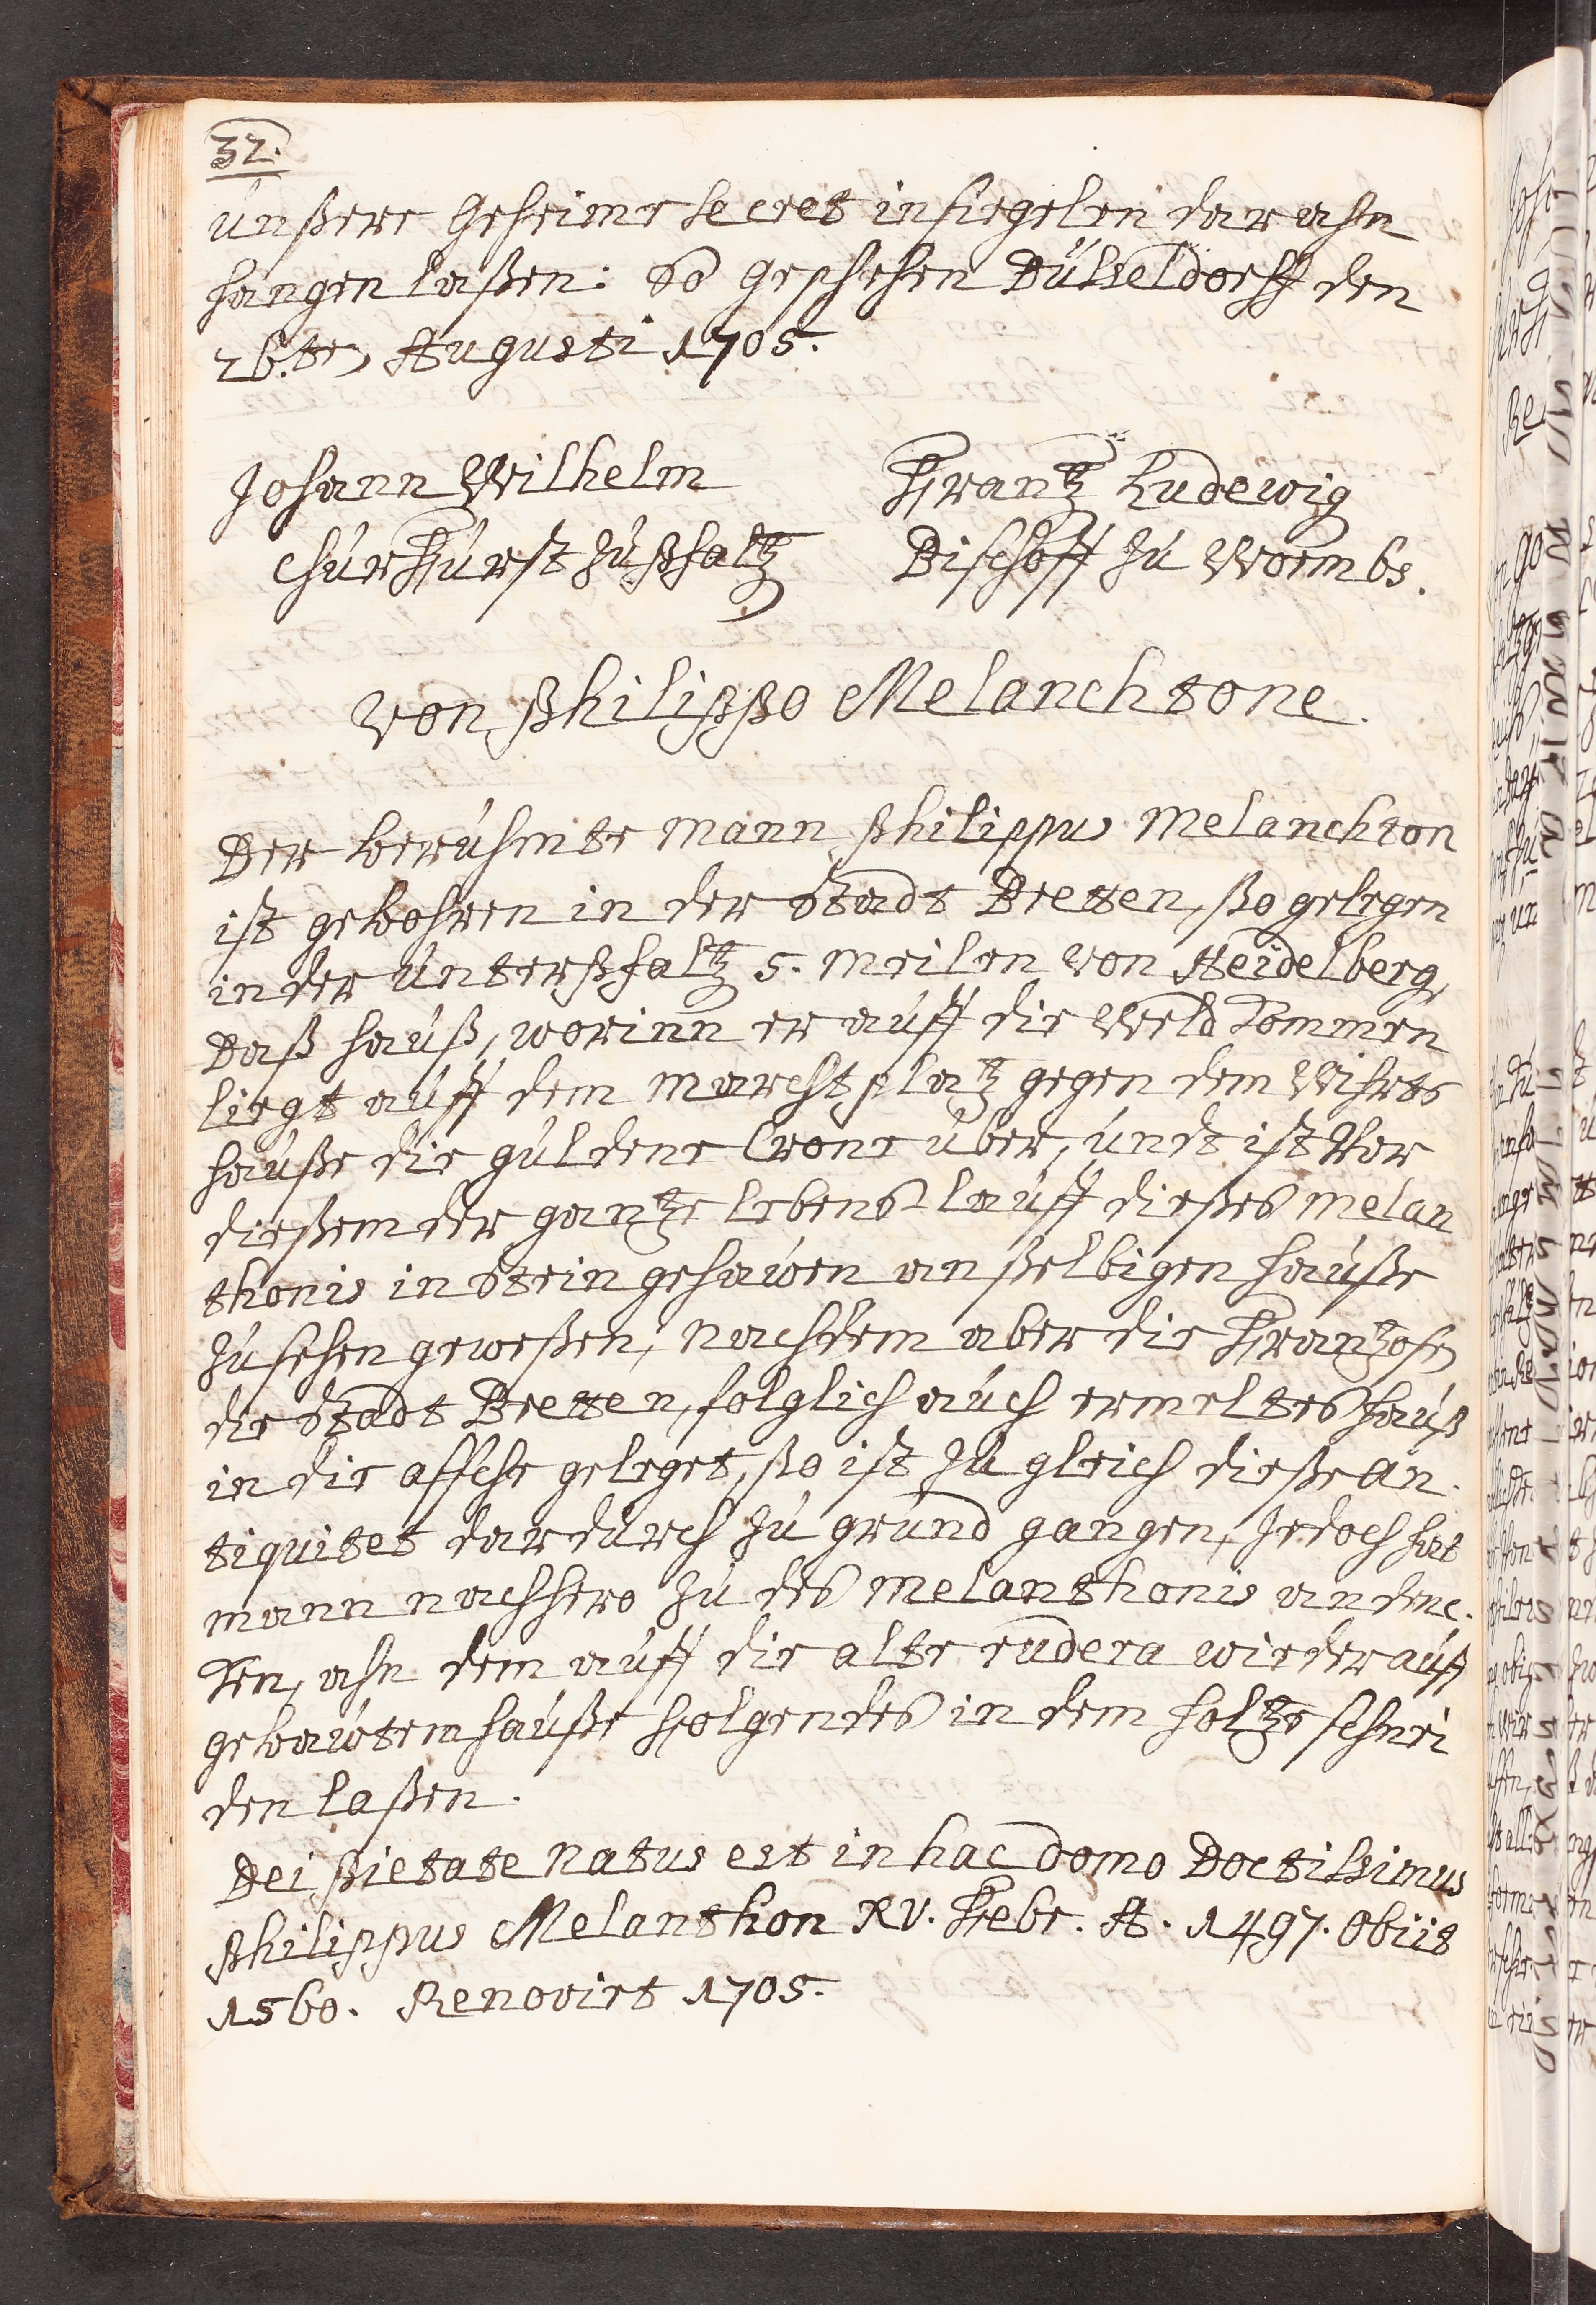 32.
unßere Geheime Secret insiegelen dar ahn
hangen laßen: So geschehen Düsseldorff den
26.ten Augusti 1705.
Johann Wilhelm
Frantz Ludewig
ChurFürst zu Pfaltz
Bischoff zu Wormbs.
Von Philippo Melanchtone.
Der berühmte Mann Philippus Melanchton
ist gebohren in der Stadt Bretten, ßo gelegen
in der Unterpfaltz 5. Meilen von Heidelberg,
Daß hauß, worinn er auff die Weld kommen
liegt auff dem Marchtplatz gegen dem Wihrts
hauße die guldene Crone über, undt ist vor
dießem der gantze lebens-lauff dießes Melan
thonis in Stein gehawen an ßelbigen hauße
zu sehen geweßen, nachdem aber die Frantzosen
die Stadt Bretten, folglich auch ermeltes hauß
in die assche geleget, ßo ist zu gleich dieße an.
tiquitet dardurch zu grund gangen, Jedoch hat
mann nachhero zu des Melanthonis andenc.
ken, ahn dem auff die alte rudera wieder auff
gebawtem hauße folgendes in dem holtze schnei
den laßen.
Dei Pietate Natus est in hac Domo Doctissimus
Philippus Melanthon XV. Febr. A. 1497. Obiit
1560. Renovirt 1705.